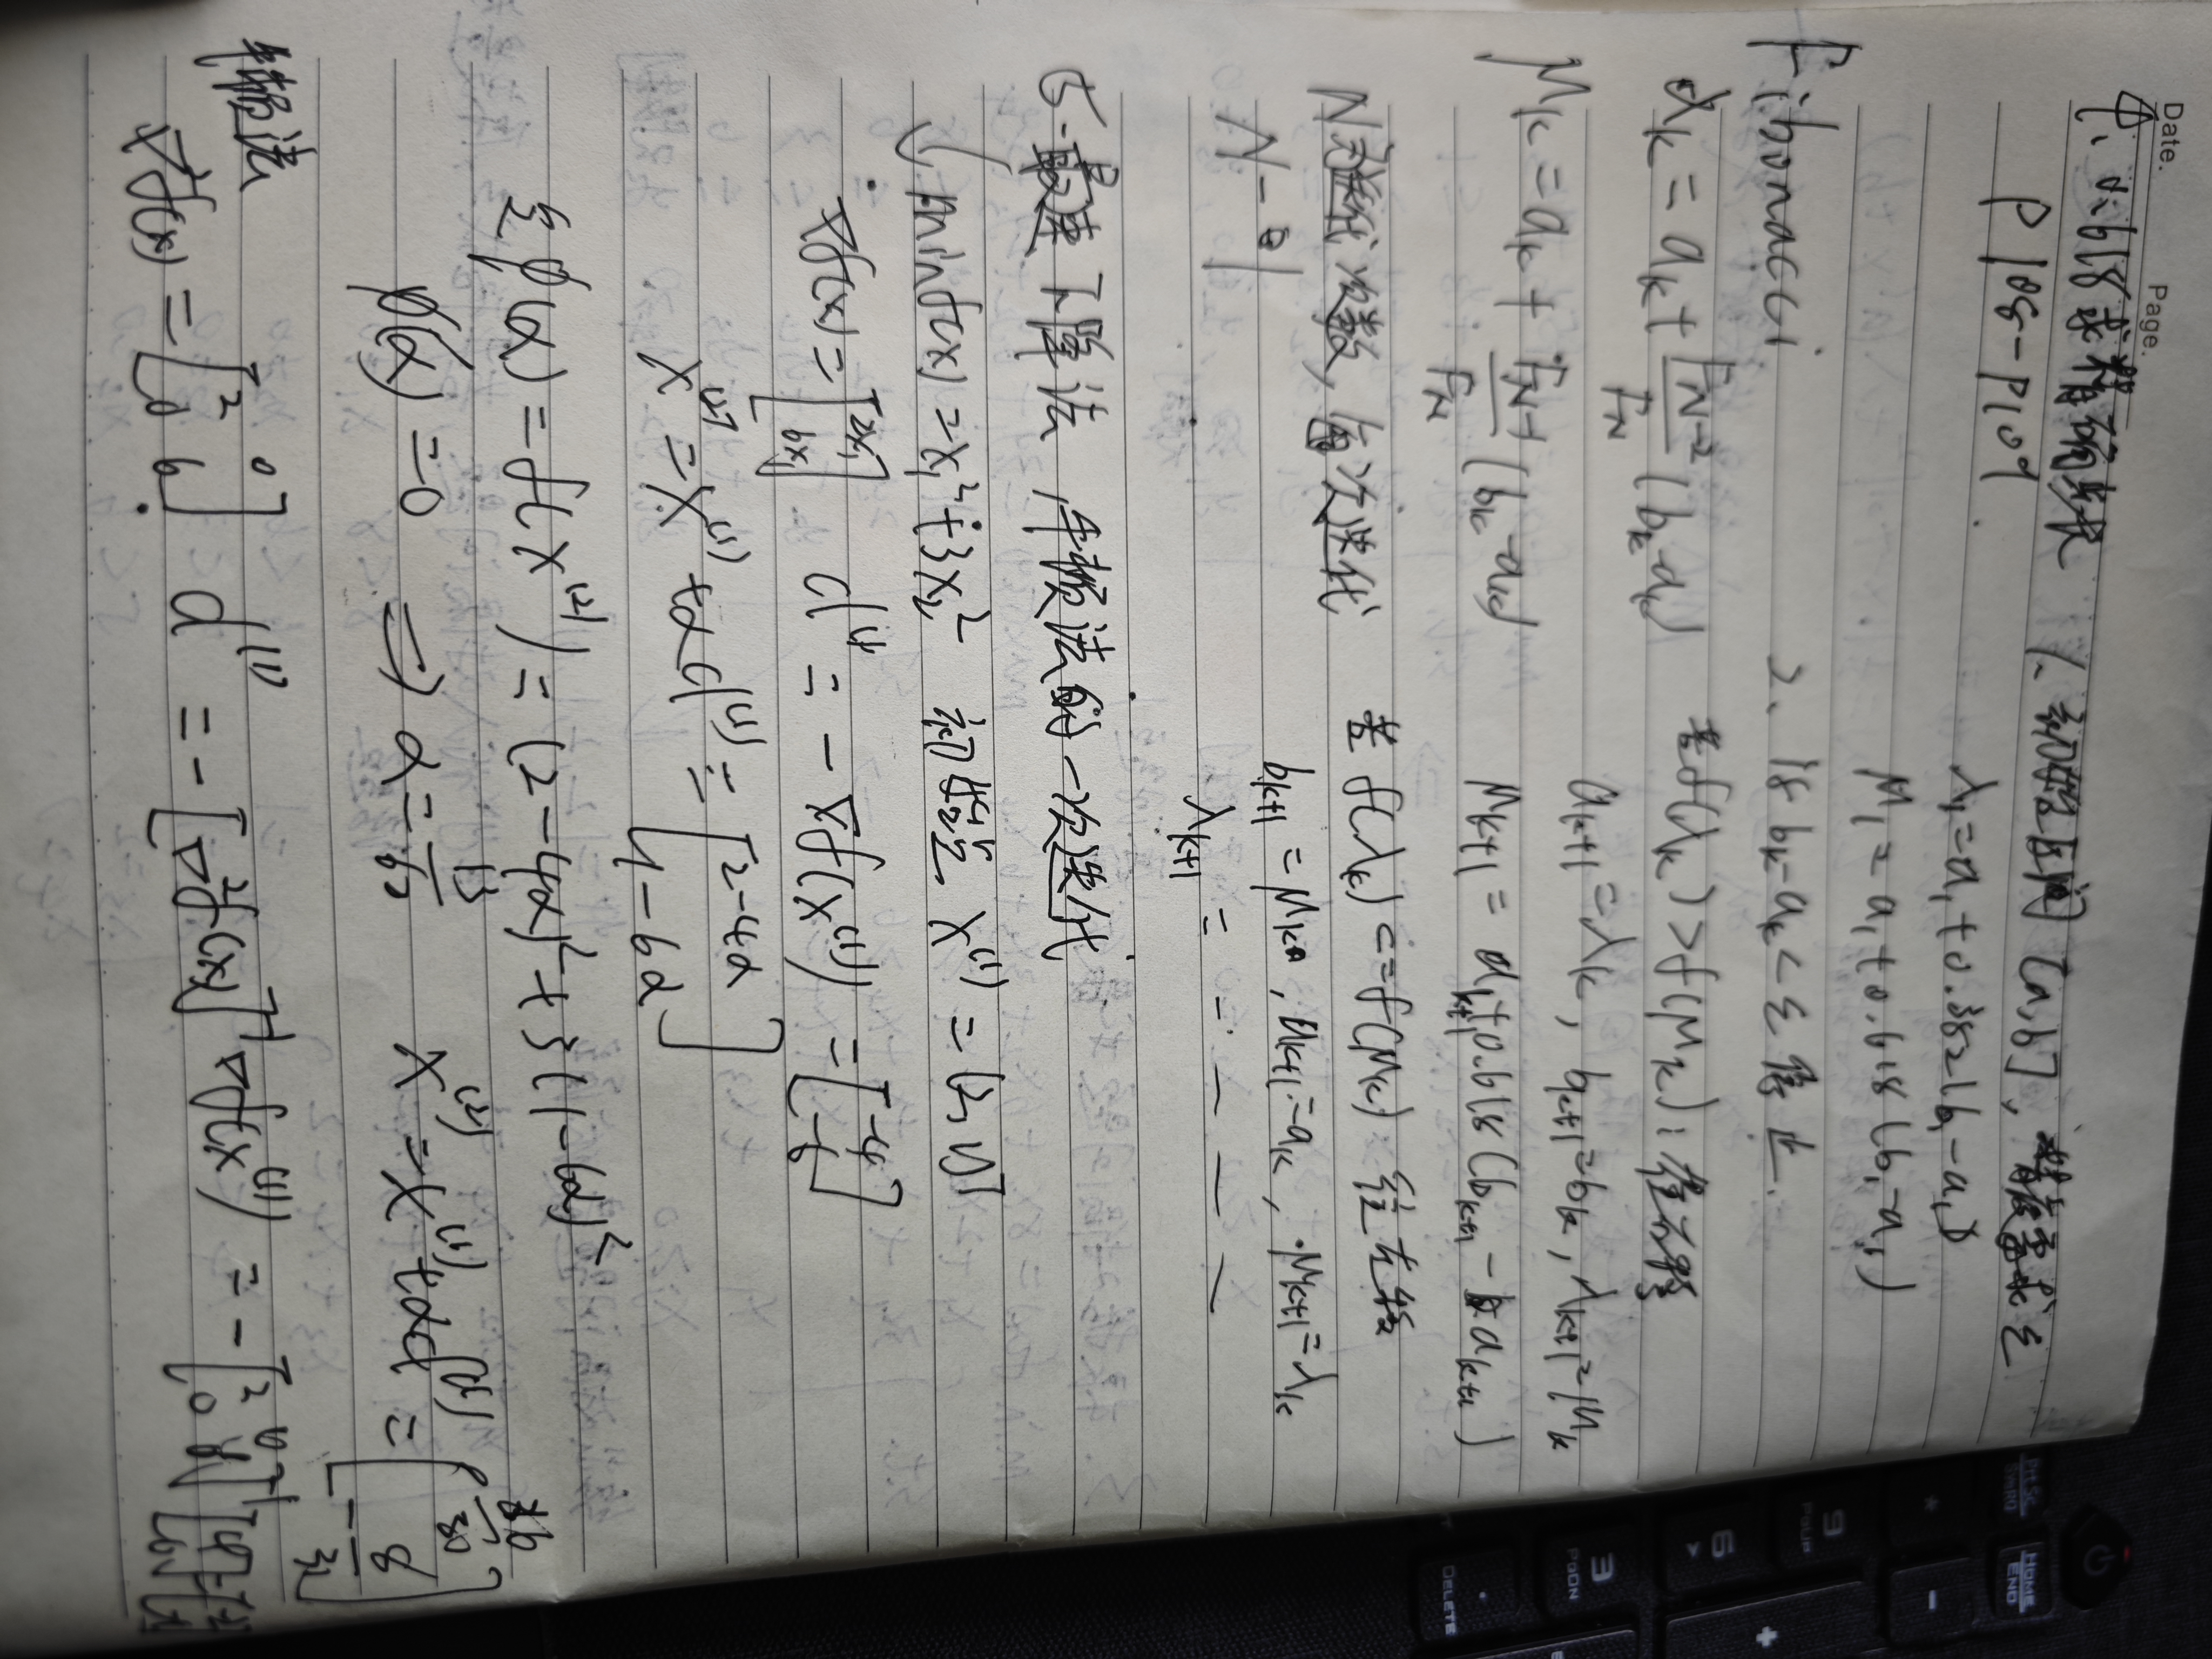 Date. Page.
4. 0.618求 1. 初始区间 [a,b], 精度要求 ε
P108-P109
λ₁=a₁+0.382(b₁-a₁)
μ₁=a₁+0.618(b₁-a₁)
Fibonacci
2. 若 bₖ-aₖ<ε 停止
λₖ=aₖ+F_{N-2}/F_N(bₖ-aₖ)
若f(λₖ)>f(μₖ):
aₖ₊₁=λₖ, bₖ₊₁=bₖ, λₖ₊₁=μₖ
μₖ=aₖ+F_{N-1}/F_N(bₖ-aₖ)
μₖ₊₁=aₖ₊₁+0.618(bₖ₊₁-aₖ₊₁)
N迭代次数, 每次迭代
若 f(λₖ)<=f(μₖ) 往左移
N-1
bₖ₊₁=μₖ, aₖ₊₁=aₖ, μₖ₊₁=λₖ
λₖ₊₁ =
5.最速下降法 牛顿法的一次迭代
minf(x)=x₁²+3x₂² 初始点 x⁽¹⁾=[2,1]ᵀ
∇f(x)=[2x₁ 6x₁] d⁽¹⁾=-∇f(x⁽¹⁾)=[-4 -6]
x⁽²⁾=x⁽¹⁾+αd⁽¹⁾=[2-4α 1-6α]
φ(α)=f(x⁽²⁾)=(2-4α)²+3(1-6α)²
φ'(α)=0 ⇒ α=13/62 x⁽²⁾=x⁽¹⁾+αd⁽¹⁾=
牛顿法
∇²f(x)=[2 0 0 6] d⁽¹⁾=-[∇²f(x)]⁻¹∇f(x⁽¹⁾)=-[2 0 0 6]⁻¹